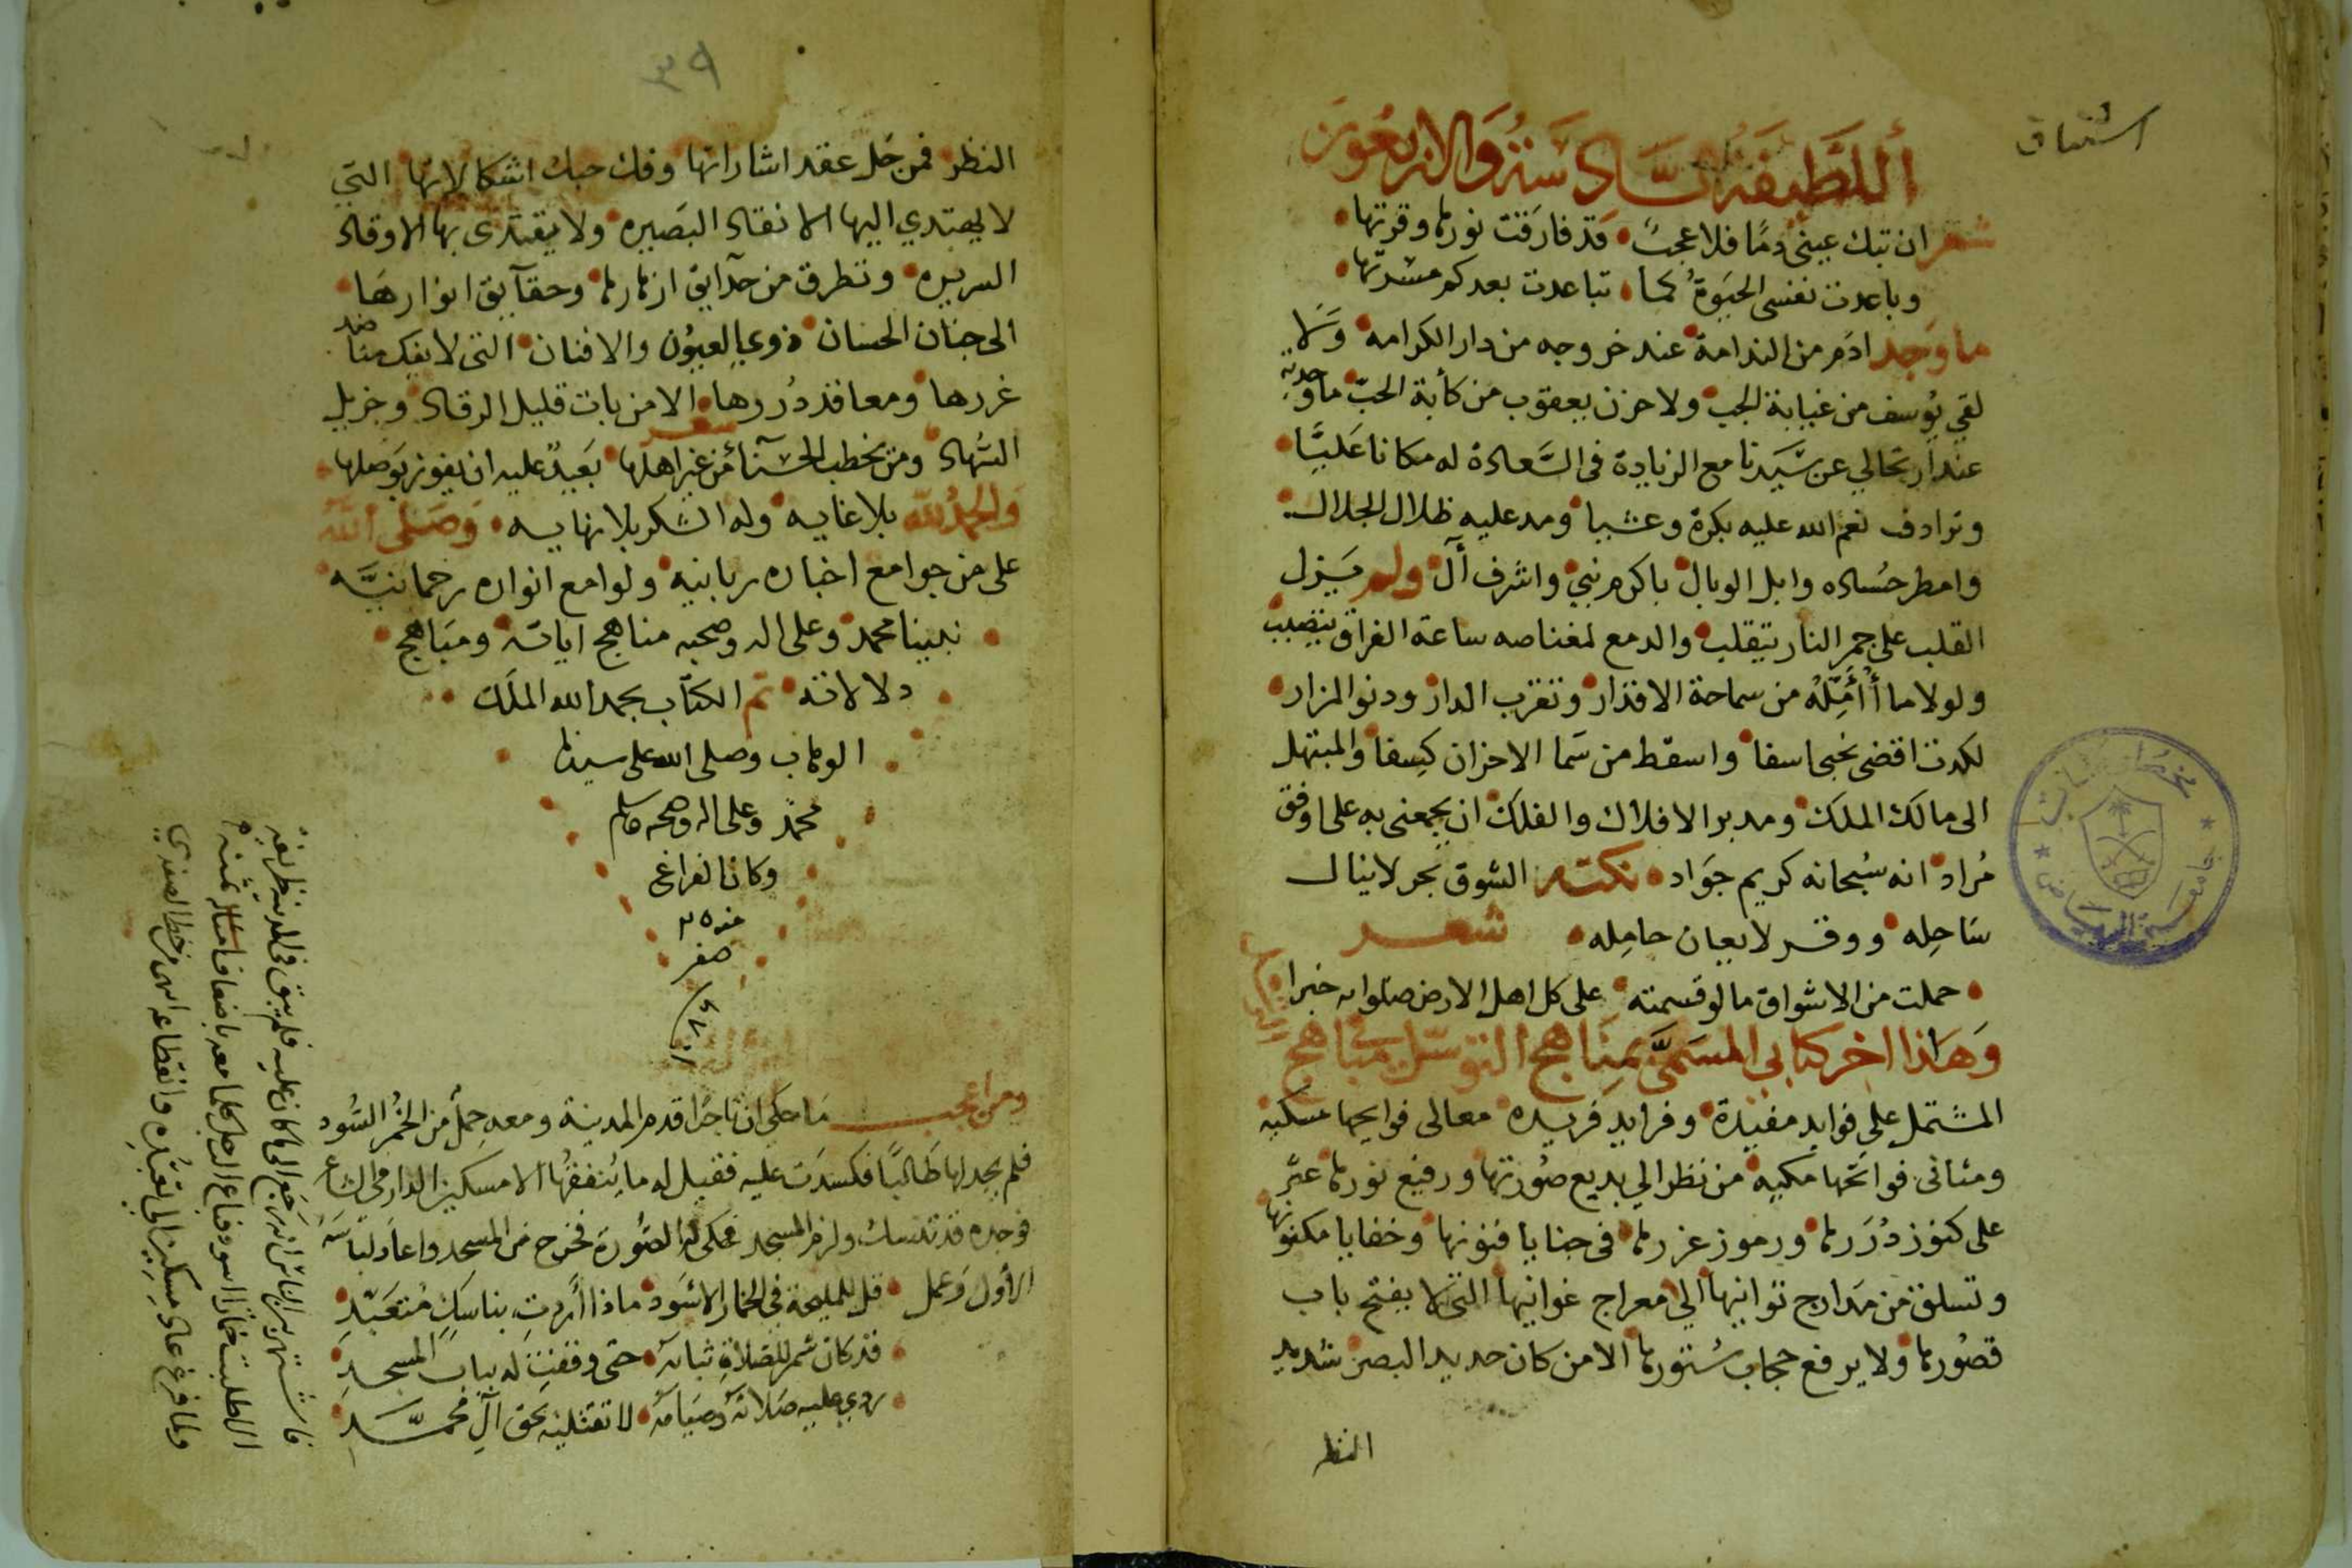 اشتياق
أللطيفة السادسة والاربعون
شعر ان تبك عيني دما فلا عجب قد فارقت نورها وقرتها
وباعدت نفسي الحيوة كما تباعدت بعدكم مسرتها
ما وجد ادم من الندامة عند خروجه من دار الكرامه ولا
لقي يوسف من غيابة الجب ولا حزن يعقوب من كأبة الحب ما وجدته
عند ارتحالي عن سيدنا مع الزيادة في السعادة له مكانا عليا
وترادف نعم الله عليه بكرة وعشيا ومد عليه ظلال الجلال
وامطر حساده وابل الوبال باكرم نبي واشرف آل ولم يزل
القلب على جمر النار يتقلب والدمع لمغناصه ساعة الفراق يتصبب
ولولا ما أأمله من سماحة الاقدار وتقرب الدار ودنو المزار
لكدت اقضي نحبي اسفا واسقط من سما الاحزان كسفا والمبتهل
الى مالك الملك ومدبر الافلاك والفلك ان يجمعني به على اوفق
مراد انه سبحانه كريم جواد نكتـه الشوق بحر لا ينال
ساحله ووقر لا يعان حامله شعـر
حملت من الاشواق ما لو قسمته على كل اهل الارض صلوا به خبرا
وهاذا اخر كتابي المسمى بمناهج التوسل في مباهج
المشتمل على فوايد مفيدة وفرايد فريده معالى فوايحها مسكيه
ومثاني فواتحها مكيه من نظر الى بديع صورتها ورفيع نورها عبر
على كنوز دررها ورموز غررها في خبايا فنونها وخفايا مكنونها
وتسلق من مدارج توانيها الى معراج غوانيها التي لا يفتح باب
قصورها ولا يرفع حجاب ستورها الا من كان حديد البصر شديد
النظر
٣٩
النظر فمن حل عقد اشاراتها وفك حبك اشكالاتها التي
لا يهتدي اليها الا نقاد البصيره ولا يقتدى بها الا وقاد
السريره وتطرق من حدايق ازهارها وحقآيق انوارها
الى جنان الحسان ذوي العيون والافنان التي لا يفك منا ضد
غررها ومعاقد دررها الا من بات قليل الرقاد وجزيل
السهاد شعر ومن يخطب الحسنآ من غير اهلها بعيد عليه ان يفوز بوصلها
والحمد لله بلا غايه وله الشكر بلا نهايه وصلى الله
على من جوامع اخباره ربانيه ولوامع انواره رحمانيه
نبينا محمد وعلى اله وصحبه مناهج اياته ومباهج
دلالاته تم الكتاب بحمد الله الملك
الوهاب وصلى الله على سيدنا
محمد وعلى اله وصحبه وسلم
وكان الفراغ
صفر
ومن اعجب ما حكي ان تاجرا قدم المدينة ومعه حمل من الخمر السود
فلم يجد لها طالبا فكسدت عليه فقيل له ما ينفقها الا مسكين الدارمي الشاعر
فوجده قد تنسك ولزم المسجد فحكى له الصورة فخرج من المسجد واعاد لباسه
الاول وعمل قل للمليحة في الخمار الاسود ماذا أردت بناسك متعبد
قد كان شمر للصلاة ثيابه حتى وقفت له بباب المسجد
ردي عليه صلاته وصيامه لا تقتليه بحق آل محمد
فاشتهر بين الناس انه رجع الى ما كان عليه فلم يبق في المدينة ظريفه
الا طلبت خمارا اسود فباع الرجل كلما معه باضعاف ثمنه
ولما فرغ عاد مسكين الى تعبده وانقطاعه من خط الصفدي